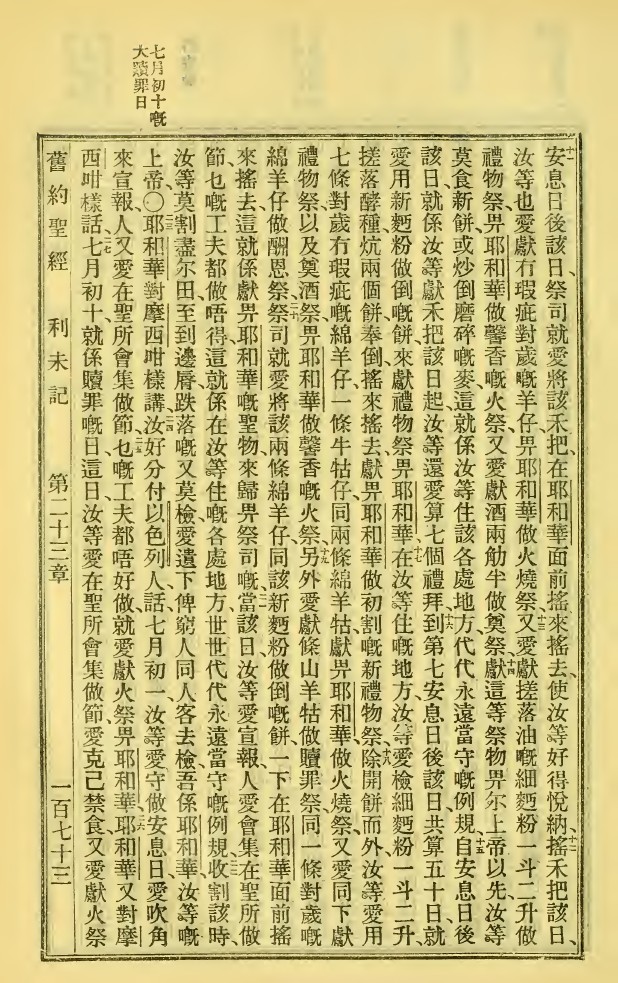 七月初十嘅
大贖罪日
十一安息日後該日、祭司就愛將該禾把、在耶和華面前搖來搖去、使汝等好得悅納、十二搖禾把該日、
汝等也愛獻冇瑕疵對歲嘅羊仔、畀耶和華做火燒祭、十三又愛獻搓落油嘅細麵粉一斗二升、做
禮物祭、畀耶和華做馨香嘅火祭、又愛獻酒兩觔半做奠祭、十四獻這等祭物畀尔上帝以先、汝等
莫食新餅、或炒倒磨碎嘅麥、這就係汝等住該各處地方、代代永遠當守嘅例規、十五自安息日後
該日、就係汝等獻禾把該日起、汝等還愛算七個禮拜、十六到第七安息日後該日、共算五十日、就
愛用新麵粉做倒嘅餅、來獻禮物祭畀耶和華、十七在汝等住嘅地方、汝等愛檢細麵粉一斗二升、
搓落酵種、炕兩個餅、奉倒搖來搖去、獻畀耶和華、做初割嘅新禮物祭、十八除開餅而外、汝等愛用
七條對歲冇瑕疵嘅綿羊仔、一條牛牯仔、同兩條綿羊牯、獻畀耶和華、做火燒祭、又愛同下獻
禮物祭、以及奠酒祭、畀耶和華做馨香嘅火祭、十九另外愛獻條山羊牯做贖罪祭、同一條對歲嘅
綿羊仔做酬恩祭、二十祭司就愛將該兩條綿羊仔、同該新麵粉做倒嘅餅、一下在耶和華面前搖
來搖去、這就係獻畀耶和華嘅聖物、來歸畀祭司嘅、二一當該日汝等愛宣報人、愛會集在聖所做
節、乜嘅工夫都做唔得、這就係在汝等住嘅各處地方、世世代代、永遠當守嘅例規、二二收割該時、
汝等莫割盡尔田至到邊脣、跌落嘅又莫檢、愛遺下俾窮人同人客去檢、吾係耶和華、汝等嘅
上帝〇二三耶和華對摩西咁樣講、二四汝好分付以色列人話、七月初一、汝等愛守做安息日、愛吹角
來宣報人、又愛在聖所會集做節、二五乜嘅工夫都唔好做、就愛獻火祭畀耶和華、二六耶和華又對摩
西咁樣話、二七七月初十、就係贖罪嘅日、這日汝等愛在聖所會集做節、愛克己禁食、又愛獻火祭
舊約聖經 利未記 第二十三章 一百七十三